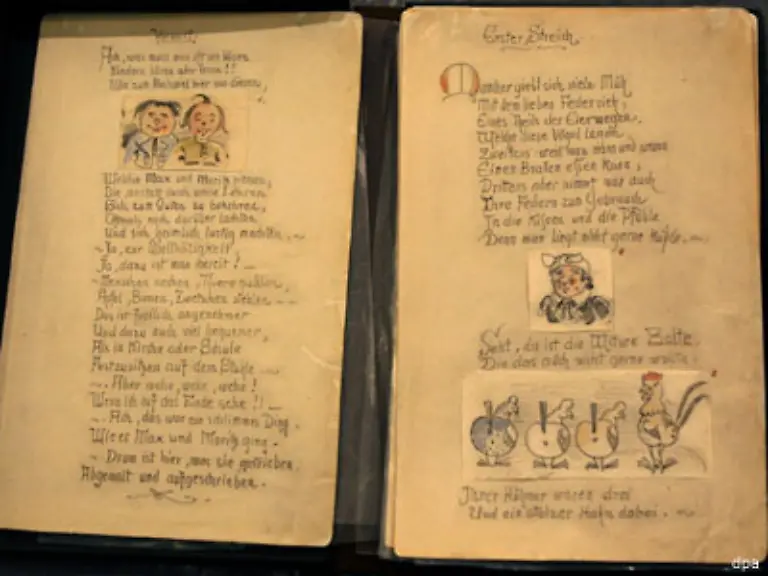 Vorwort.
Ach, was muss man oft von bösen
Kindern hören oder lesen!!
Wie zum Beispiel hier von diesen,
Welche Max und Moritz hiessen,
Die, anstatt durch weise Lehren
Sich zum Guten zu bekehren,
Oftmals noch darüber lachten
Und sich heimlich lustig machten. –
– Ja, zur Übelthätigkeit
Ja, dazu ist man bereit! –
– Menschen necken, Thiere quälen,
Äpfel, Birnen, Zwetschen stehlen – –
Das ist freilich angenehmer
Und dazu auch viel bequemer,
Als in Kirche oder Schule
Festzusitzen auf dem Stuhle. –
– Aber wehe, wehe, wehe!
Wenn ich auf das Ende sehe!! –
– Ach, das war ein schlimmes Ding,
Wie es Max und Moritz ging.
– Drum ist hier, was sie getrieben,
Abgemalt und aufgeschrieben.
Erster Streich.
Mancher giebt sich viele Müh
Mit dem lieben Federvieh;
Eines Theils der Eier wegen,
Welche diese Vögel legen,
Zweitens weil man dann und wann
Einen Braten essen kann;
Drittens aber nimmt man auch
Ihre Federn zum Gebrauch
In die Kissen und die Pfühle
Denn man liegt nicht gerne kühle. –
Seht, da ist die Wittwe Bolte,
Die das auch nicht gerne wollte.
Ihrer Hühner waren drei
Und ein stolzer Hahn dabei. –
dpa